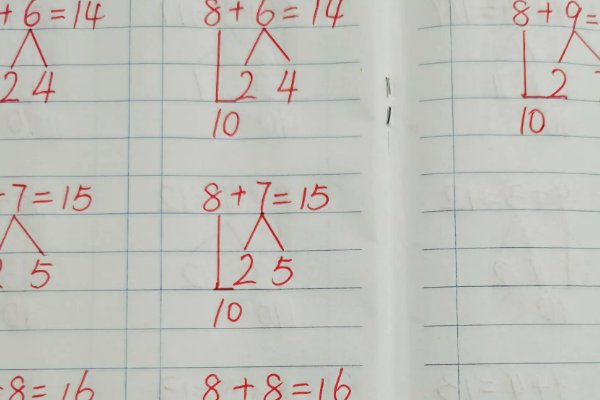 +6=14 8+6=14 8+9=
2 4 2 4 2
10 10
7=15 8+7=15
5 2 5
10
8=16 8+8=16